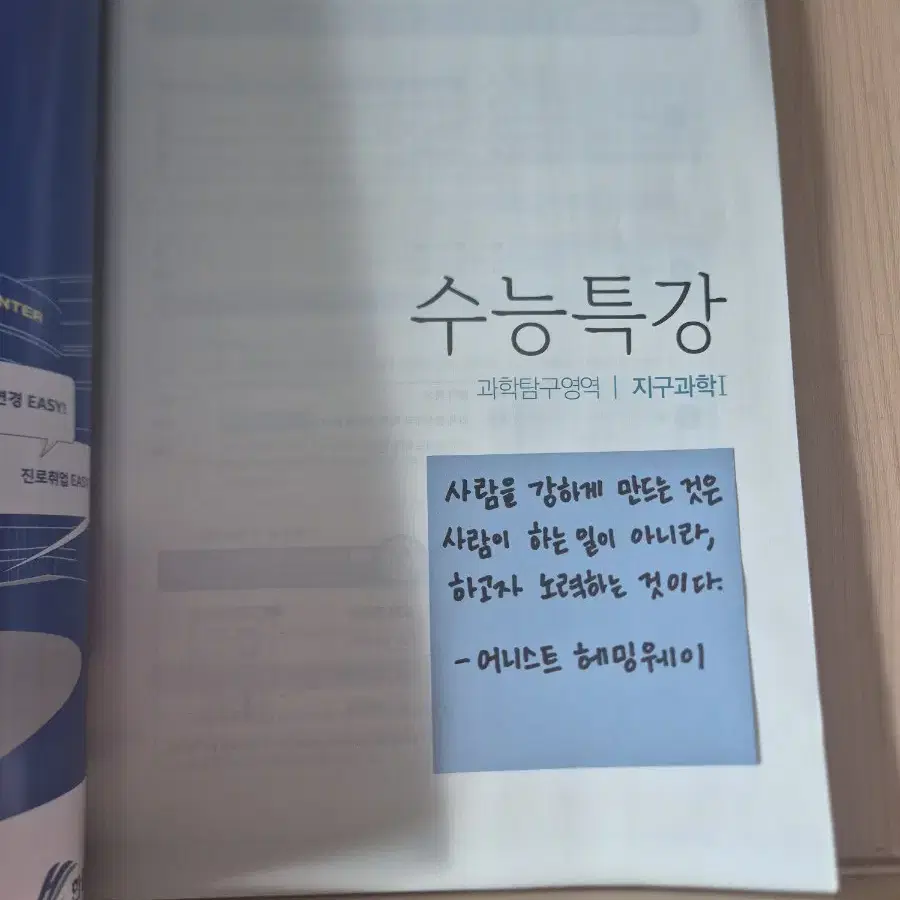 수능특강
과학탐구영역 | 지구과학I
사람을 강하게 만드는 것은
사람이 하는 일이 아니라,
하고자 노력하는 것이다.
- 어니스트 헤밍웨이
NTER
변경 EASY!
진로취업 EAS